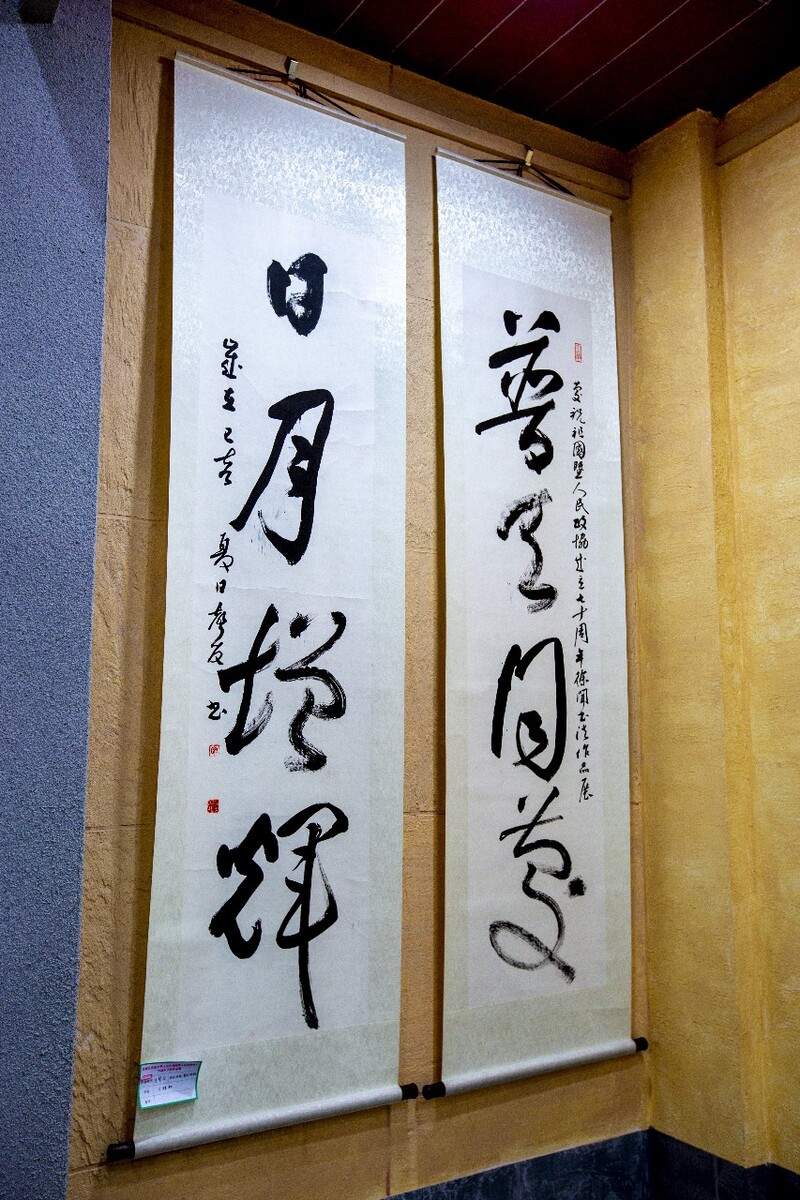 普天同慶
慶祝祖國暨人民政協成立七十周年徐聞書法作品展
日月增輝
歲在己亥 夏日
書